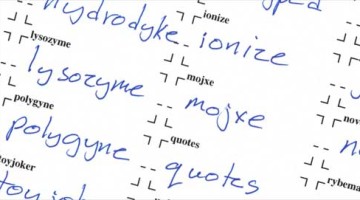 hydrodyke
ionize
ionize
lysozyme
lysozyme
mojxe
mojxe
polygyne
polygyne
quotes
quotes
toyjoker